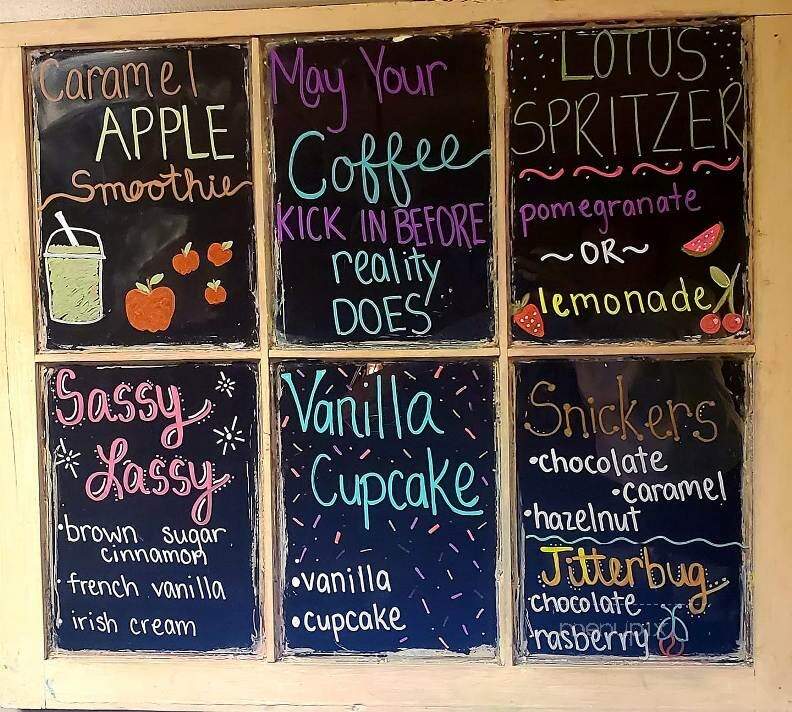 Caramel
APPLE
Smoothie
May Your
Coffee
KICK IN BEFORE
reality
DOES
LOTUS
SPRITZER
pomegranate
~OR~
lemonade
Sassy
Lassy
•brown sugar
cinnamon
•french vanilla
•irish cream
Vanilla
Cupcake
•vanilla
•cupcake
Snickers
•chocolate
•caramel
•hazelnut
Jitterbug
chocolate
rasberry